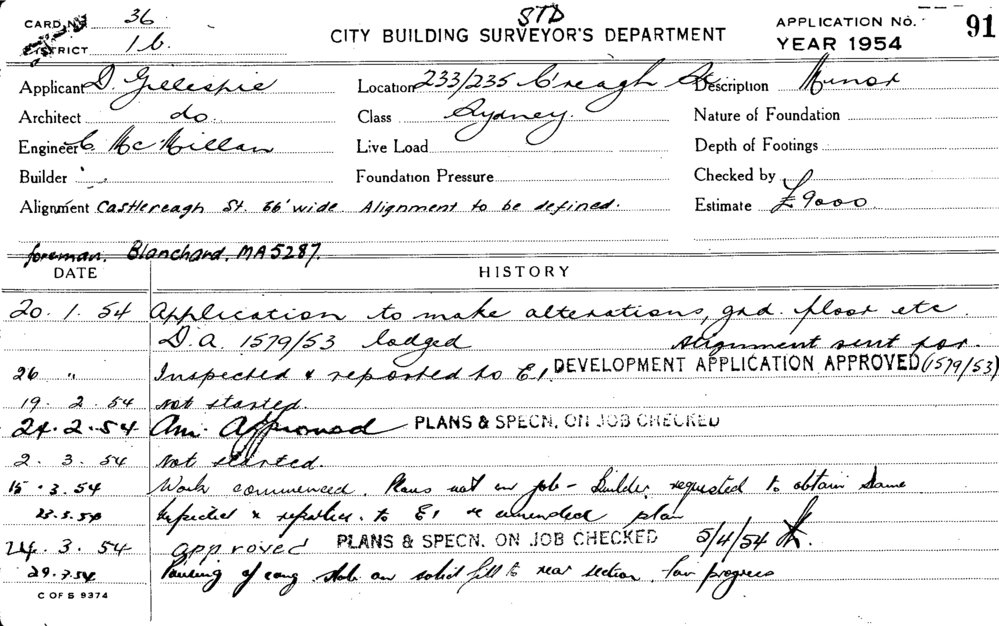 CARD No 36
DISTRICT 1b.
STD
CITY BUILDING SURVEYOR'S DEPARTMENT
APPLICATION No. 91
YEAR 1954
Applicant D. Gillespie
Location 233/235 C'reagh St
Description Minor
Architect do.
Class Sydney.
Nature of Foundation
Engineer C McMillan
Live Load
Depth of Footings
Builder
Foundation Pressure
Checked by
Alignment Castlereagh St. 66' wide. Alignment to be defined.
Estimate £9000
foreman. Blanchard. MA5287.
DATE HISTORY
20. 1. 54 Application to make alterations, grd. floor etc
D.a. 1579/53 lodged Alignment sent for.
26 " Inspected & reported to E.1. DEVELOPMENT APPLICATION APPROVED (1579/53)
19. 2. 54 Not started.
24. 2. 54 Am. Approved PLANS & SPECN. ON JOB CHECKED
2. 3. 54 Not started.
15. 3. 54 Work commenced. Plans not on job - Builder requested to obtain same
23.3.54 Inspected & reported to E1 re amended plan
24. 3. 54 approved PLANS & SPECN. ON JOB CHECKED 5/4/54
29.3.54 Pouring of conc slab on solid fill to rear section. fair progress
C OF S 9374